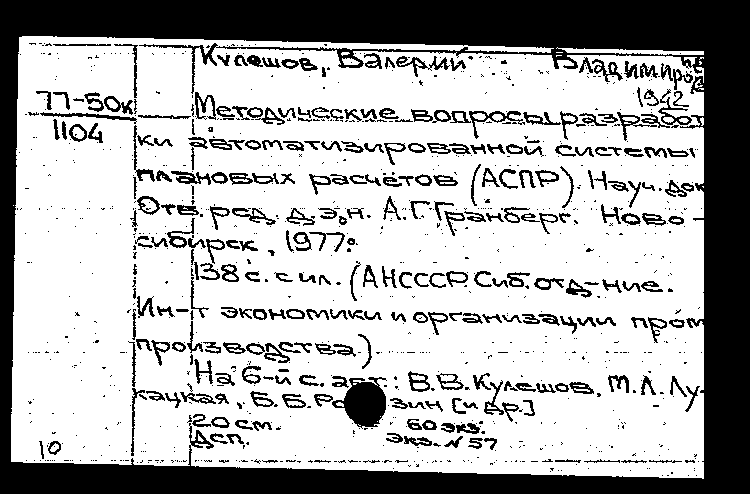 Кулешов, Валерий Владимиров
1942
77-50к
1104
Методические вопросы разработ
ки автоматизированной системы
плановых расчётов (АСПР). Науч. док
Отв. ред. д.э.н. А.Г. Гранберг. Ново-
сибирск, 1977.
138 с. с ил. (АН СССР Сиб. отд-ние.
Ин-т экономики и организации пром
производства)
На 6-й с. авт.: В.В. Кулешов, М.Л. Лу-
кацкая, Б.Б. Ро зин [и др.]
20 см. 60 экз.
Дсп. Экз. N 57
10